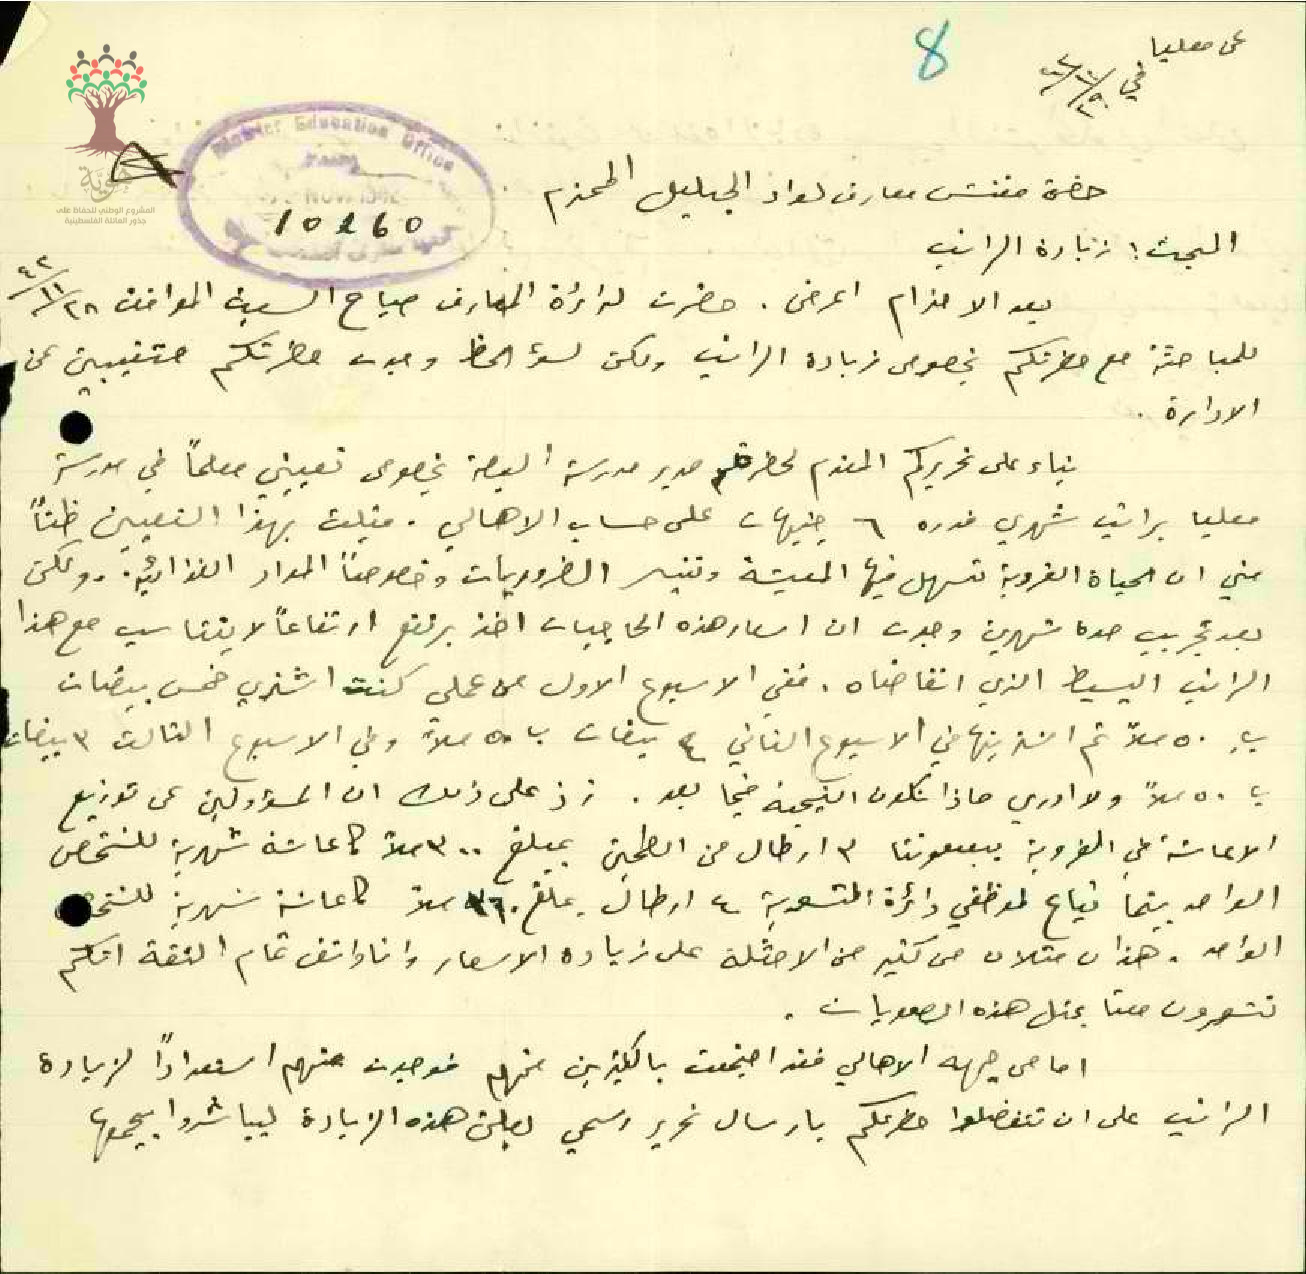 8
عن معليا
في ٢٩/١١/٤٢
District Education Office
NOV 1942
10260
هوية
المشروع الوطني للحفاظ على
جذور العائلة الفلسطينية
حضرة مفتش معارف لواء الجليل المحترم
البحث: زيادة الراتب
بعد الاحترام اعرض. حضرت لدائرة المعارف صباح السبت الموافق ٢٨/١١/٤٢
للمباحثة مع حضرتكم بخصوص زيادة الراتب ولكن لسؤ الحظ وجدت حضرتكم متغيبين عن
الادارة.
بناء على تحريركم المقدم لحضرة مدير مدرسة البصة بخصوص تعييني معلماً في مدرسة
معليا براتب شهري قدره ٦ جنيهات على حساب الاهالي. قبلت بهذا التعيين ظناً
مني ان الحياة القروية تسهل فيها المعيشة وتتيسر الضروريات وخصوصاً المواد الغذائية. ولكن
بعد تجريب مدة شهرين وجدت ان اسعار هذه الحاجيات اخذ يرتفع ارتفاعاً لا يتناسب مع هذا
الراتب البسيط الذي اتقاضاه. ففي الاسبوع الاول من عملي كنت اشتري خمس بيضات
بـ ٥٠ ملاً ثم اشتريتها في الاسبوع الثاني ٤ بيضات بـ ٥٠ ملاً وفي الاسبوع الثالث ٣ بيضات
بـ ٥٠ ملاً ولا ادري ماذا تكون النتيجة فيما بعد. زد على ذلك ان المسؤولين عن توزيع
الاعاشة في القرية يبيعوننا ٣ ارطال من الطحين بمبلغ ٣٠٠ ملاً كاعاشة شهرية للشخص
الواحد بينما تباع لموظفي دائرة ٤ ارطال بمبلغ ملاً كاعاشة شهرية للشخص
الواحد. هذان مثلان من كثير من الامثلة على زيادة الاسعار وانا واثق تمام الثقة انكم
تشعرون معنا بمثل هذه الصعوبات.
اما من جهة الاهالي فقد اجتمعت بالكثيرين منهم فوجدت عندهم استعداداً لزيادة
الراتب على ان تتفضلوا حضرتكم بارسال تحرير رسمي يعلن هذه الزيادة ليباشروا بجمعها